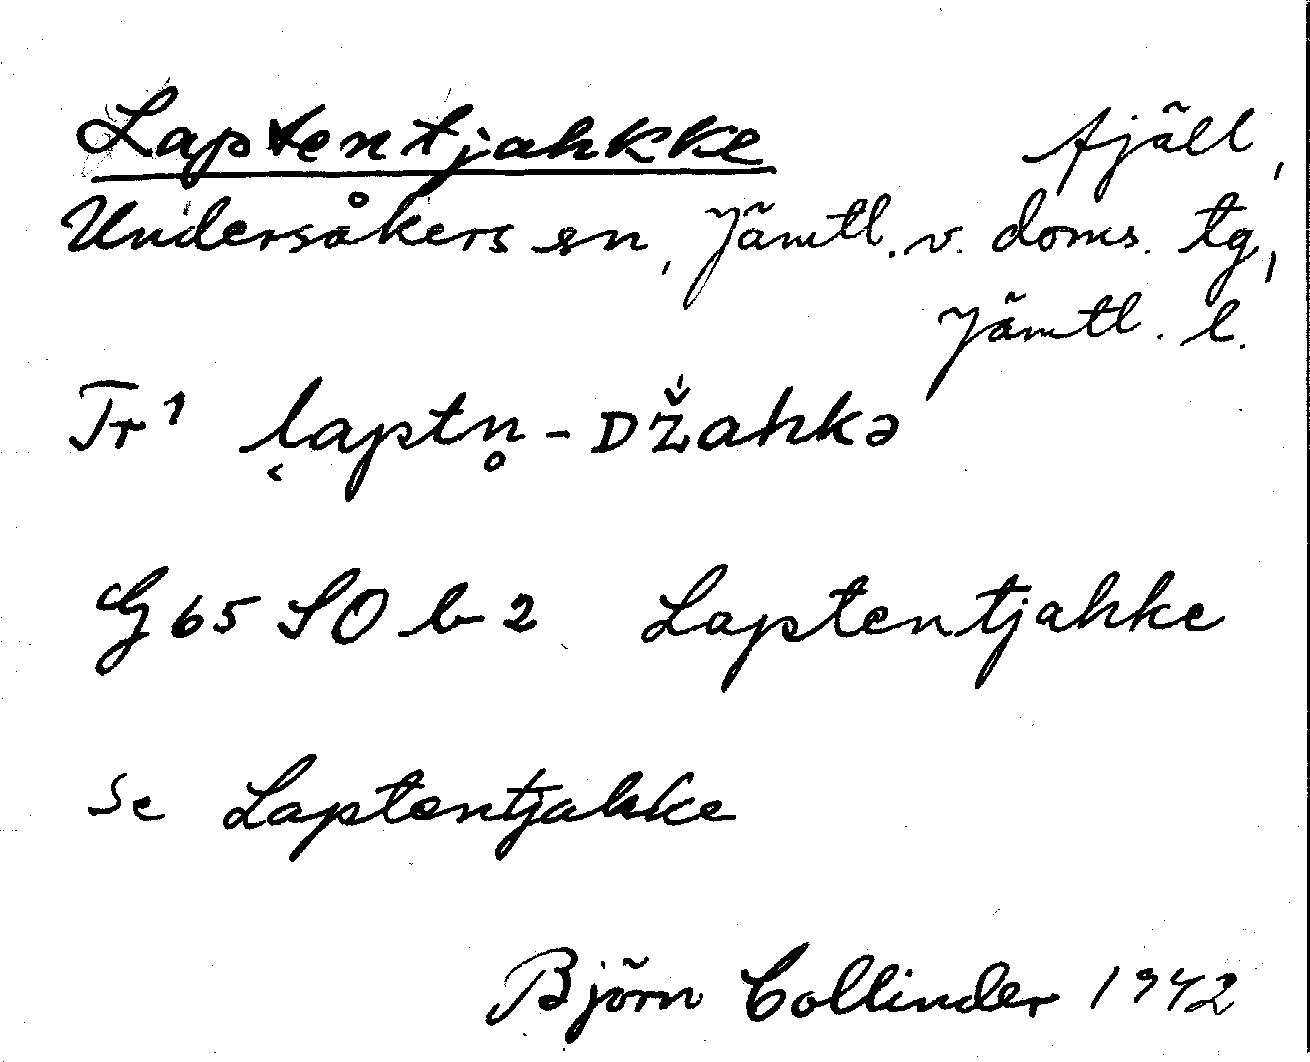 Laptentjahkke fjäll,
Undersåkers sn, Jämtl. v. doms. tg,
Jämtl. l.
Tr¹ l̬aptn̥-ᴅž́ahkə
G65 SO b 2 Laptentjahke
Se Laptentjahke
Björn Collinder 1942